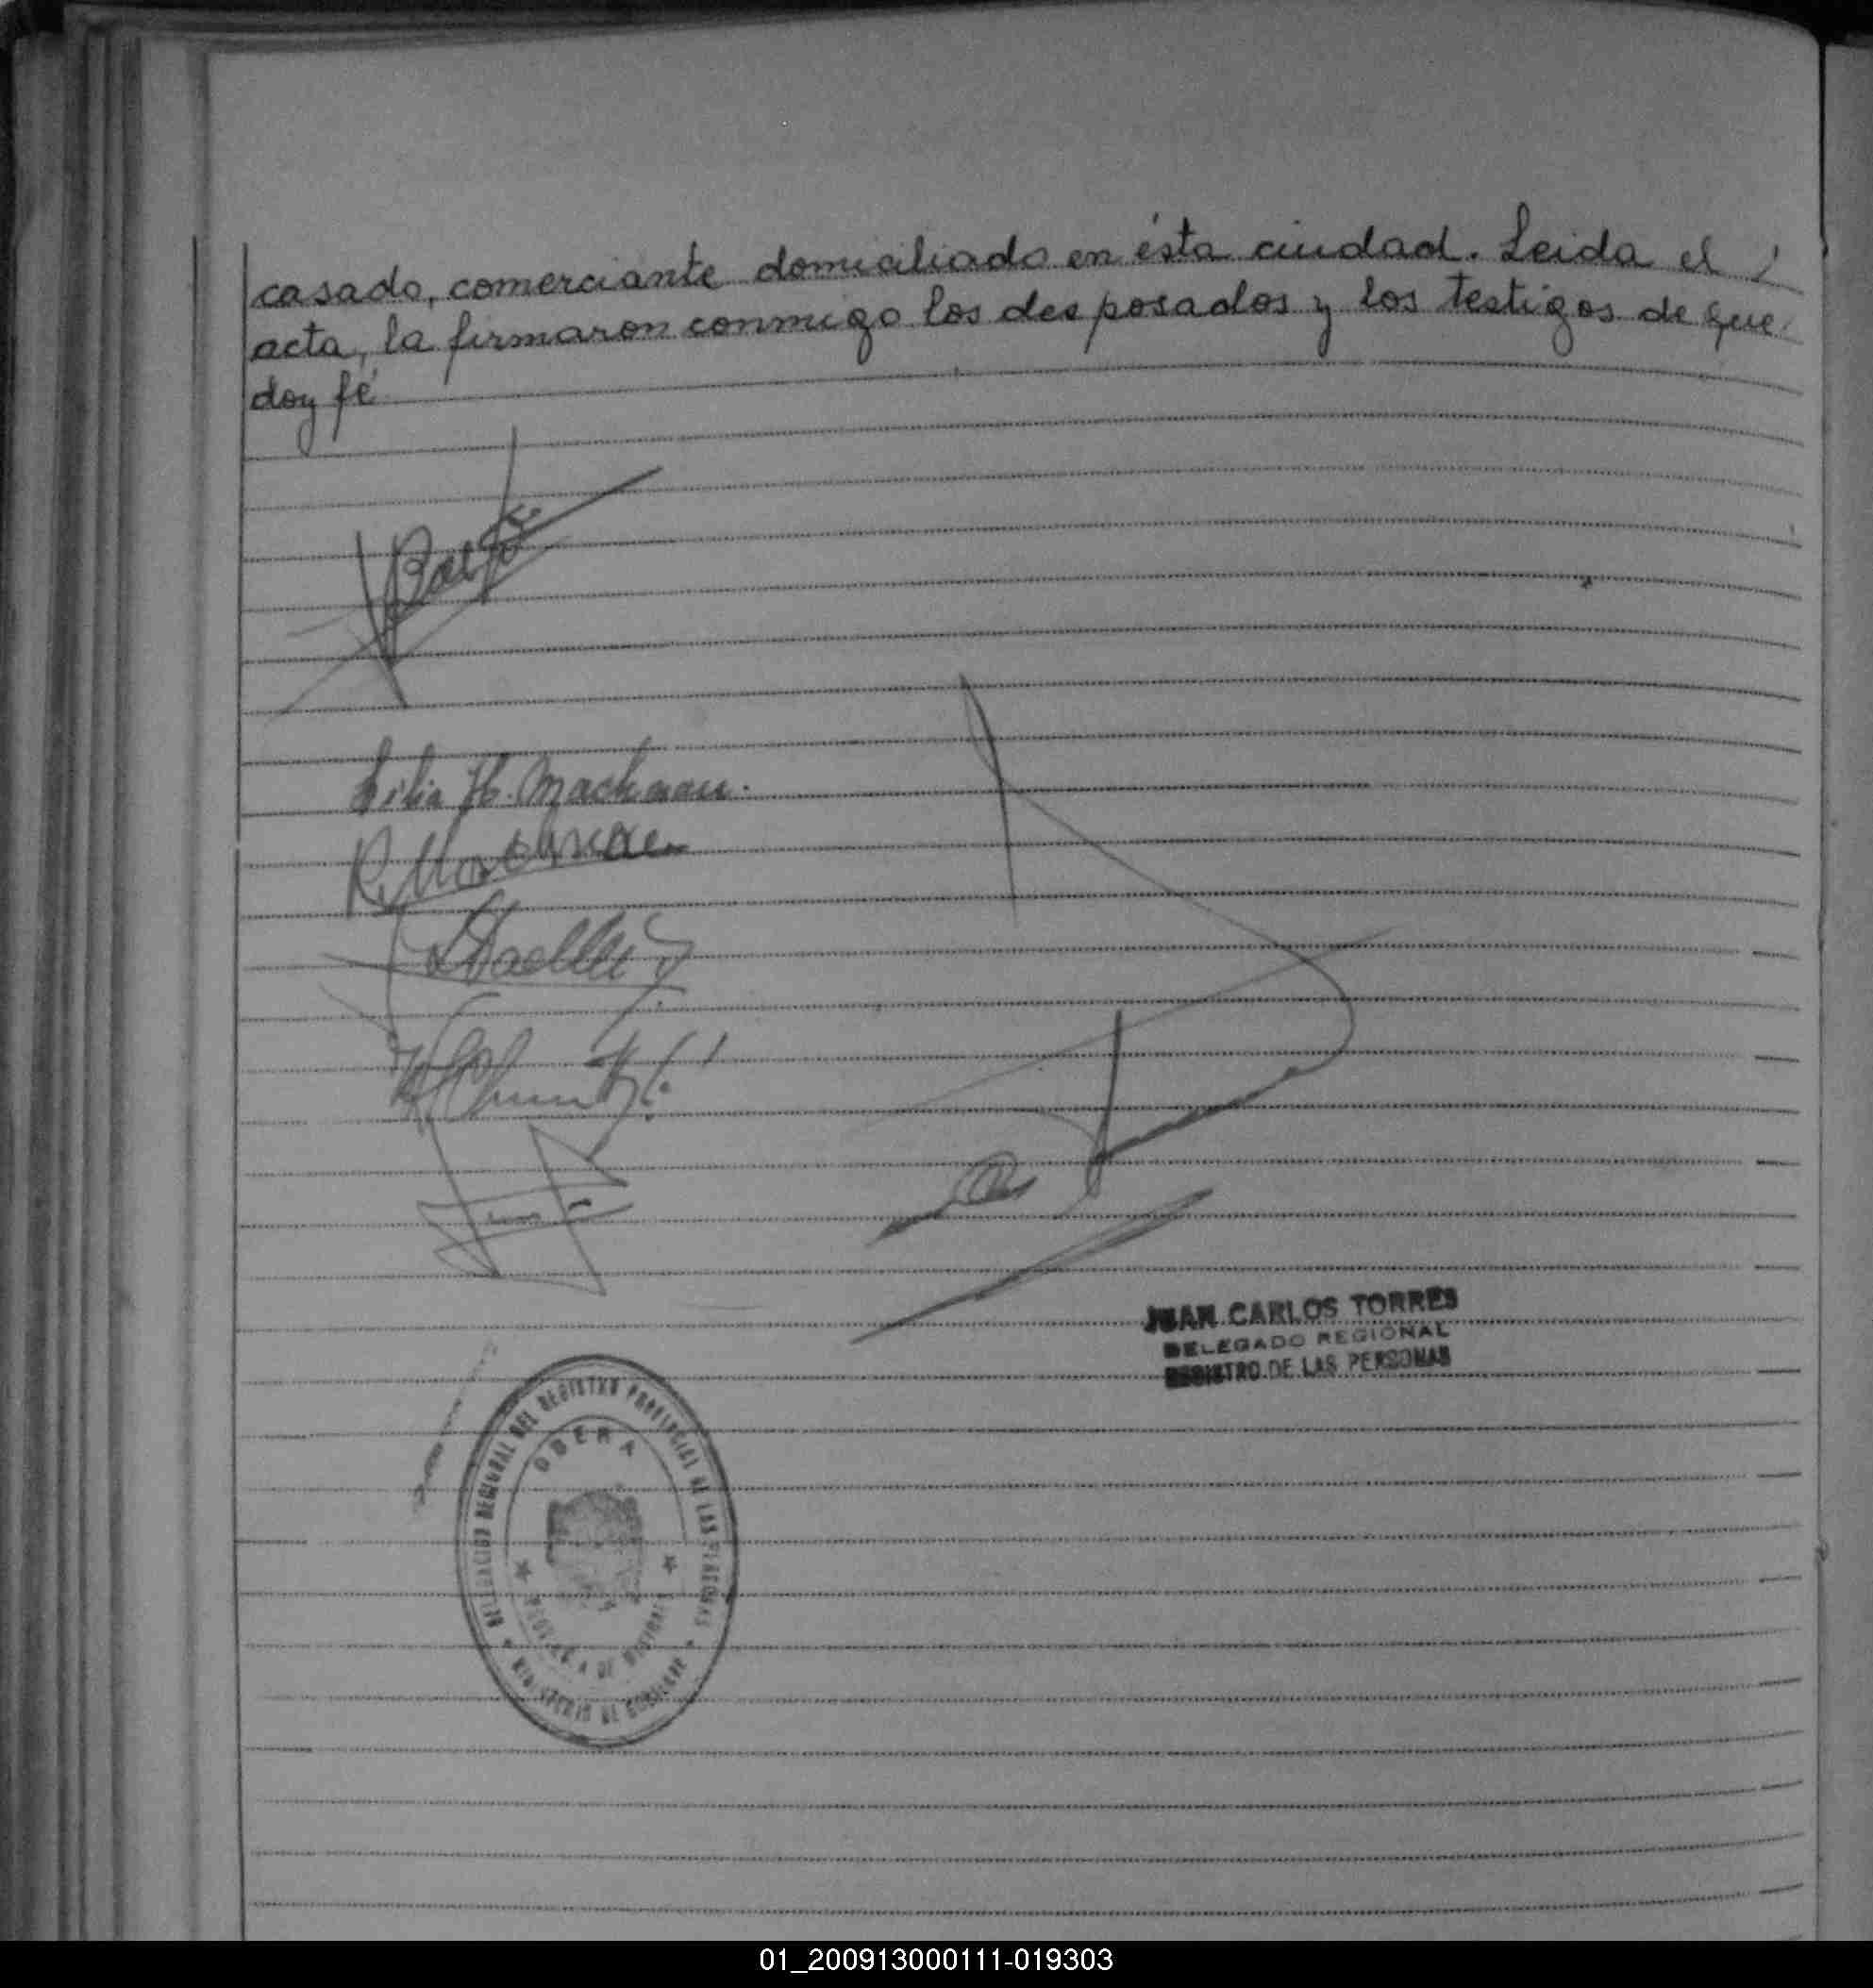 casado, comerciante domiciliado en ésta ciudad. Leida el
acta, la firmaron conmigo los desposados y los testigos de que
doy fé
Lilia H. Mackmann.
JUAN CARLOS TORRES
DELEGADO REGIONAL
REGISTRO DE LAS PERSONAS
DELEGACION REGIONAL DEL REGISTRO PROVINCIAL DE LAS PERSONAS
OBERA
PROVINCIA DE MISIONES
MINISTERIO DE GOBIERNO
01_200913000111-019303